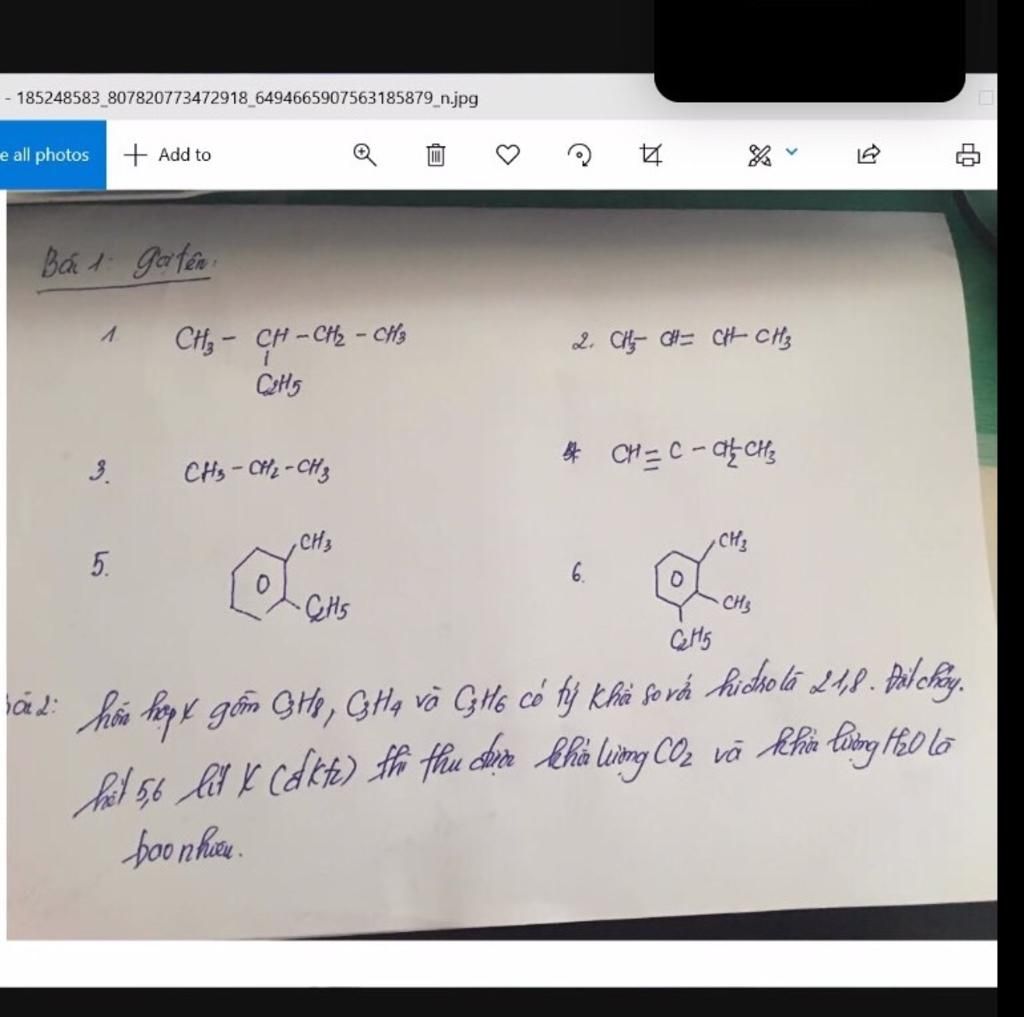 - 185248583_807820773472918_6494665907563185879_n.jpg
e all photos + Add to
Bài 1: gọi tên.
1. CH3 - CH - CH2 - CH3
C2H5
2. CH3- CH= CH- CH3
3. CH3 - CH2 - CH3
CH≡C - CH2-CH3
5. CH3
C2H5
6. CH3
CH3
C2H5
ài 2: hỗn hợp X gồm C3H8, C3H4 và C3H6 có tỷ khối so với hiđro là 21,8. Đốt cháy.
hết 5,6 lít X (đktc) thì thu được khối lượng CO2 và khối lượng H2O là
bao nhiêu.